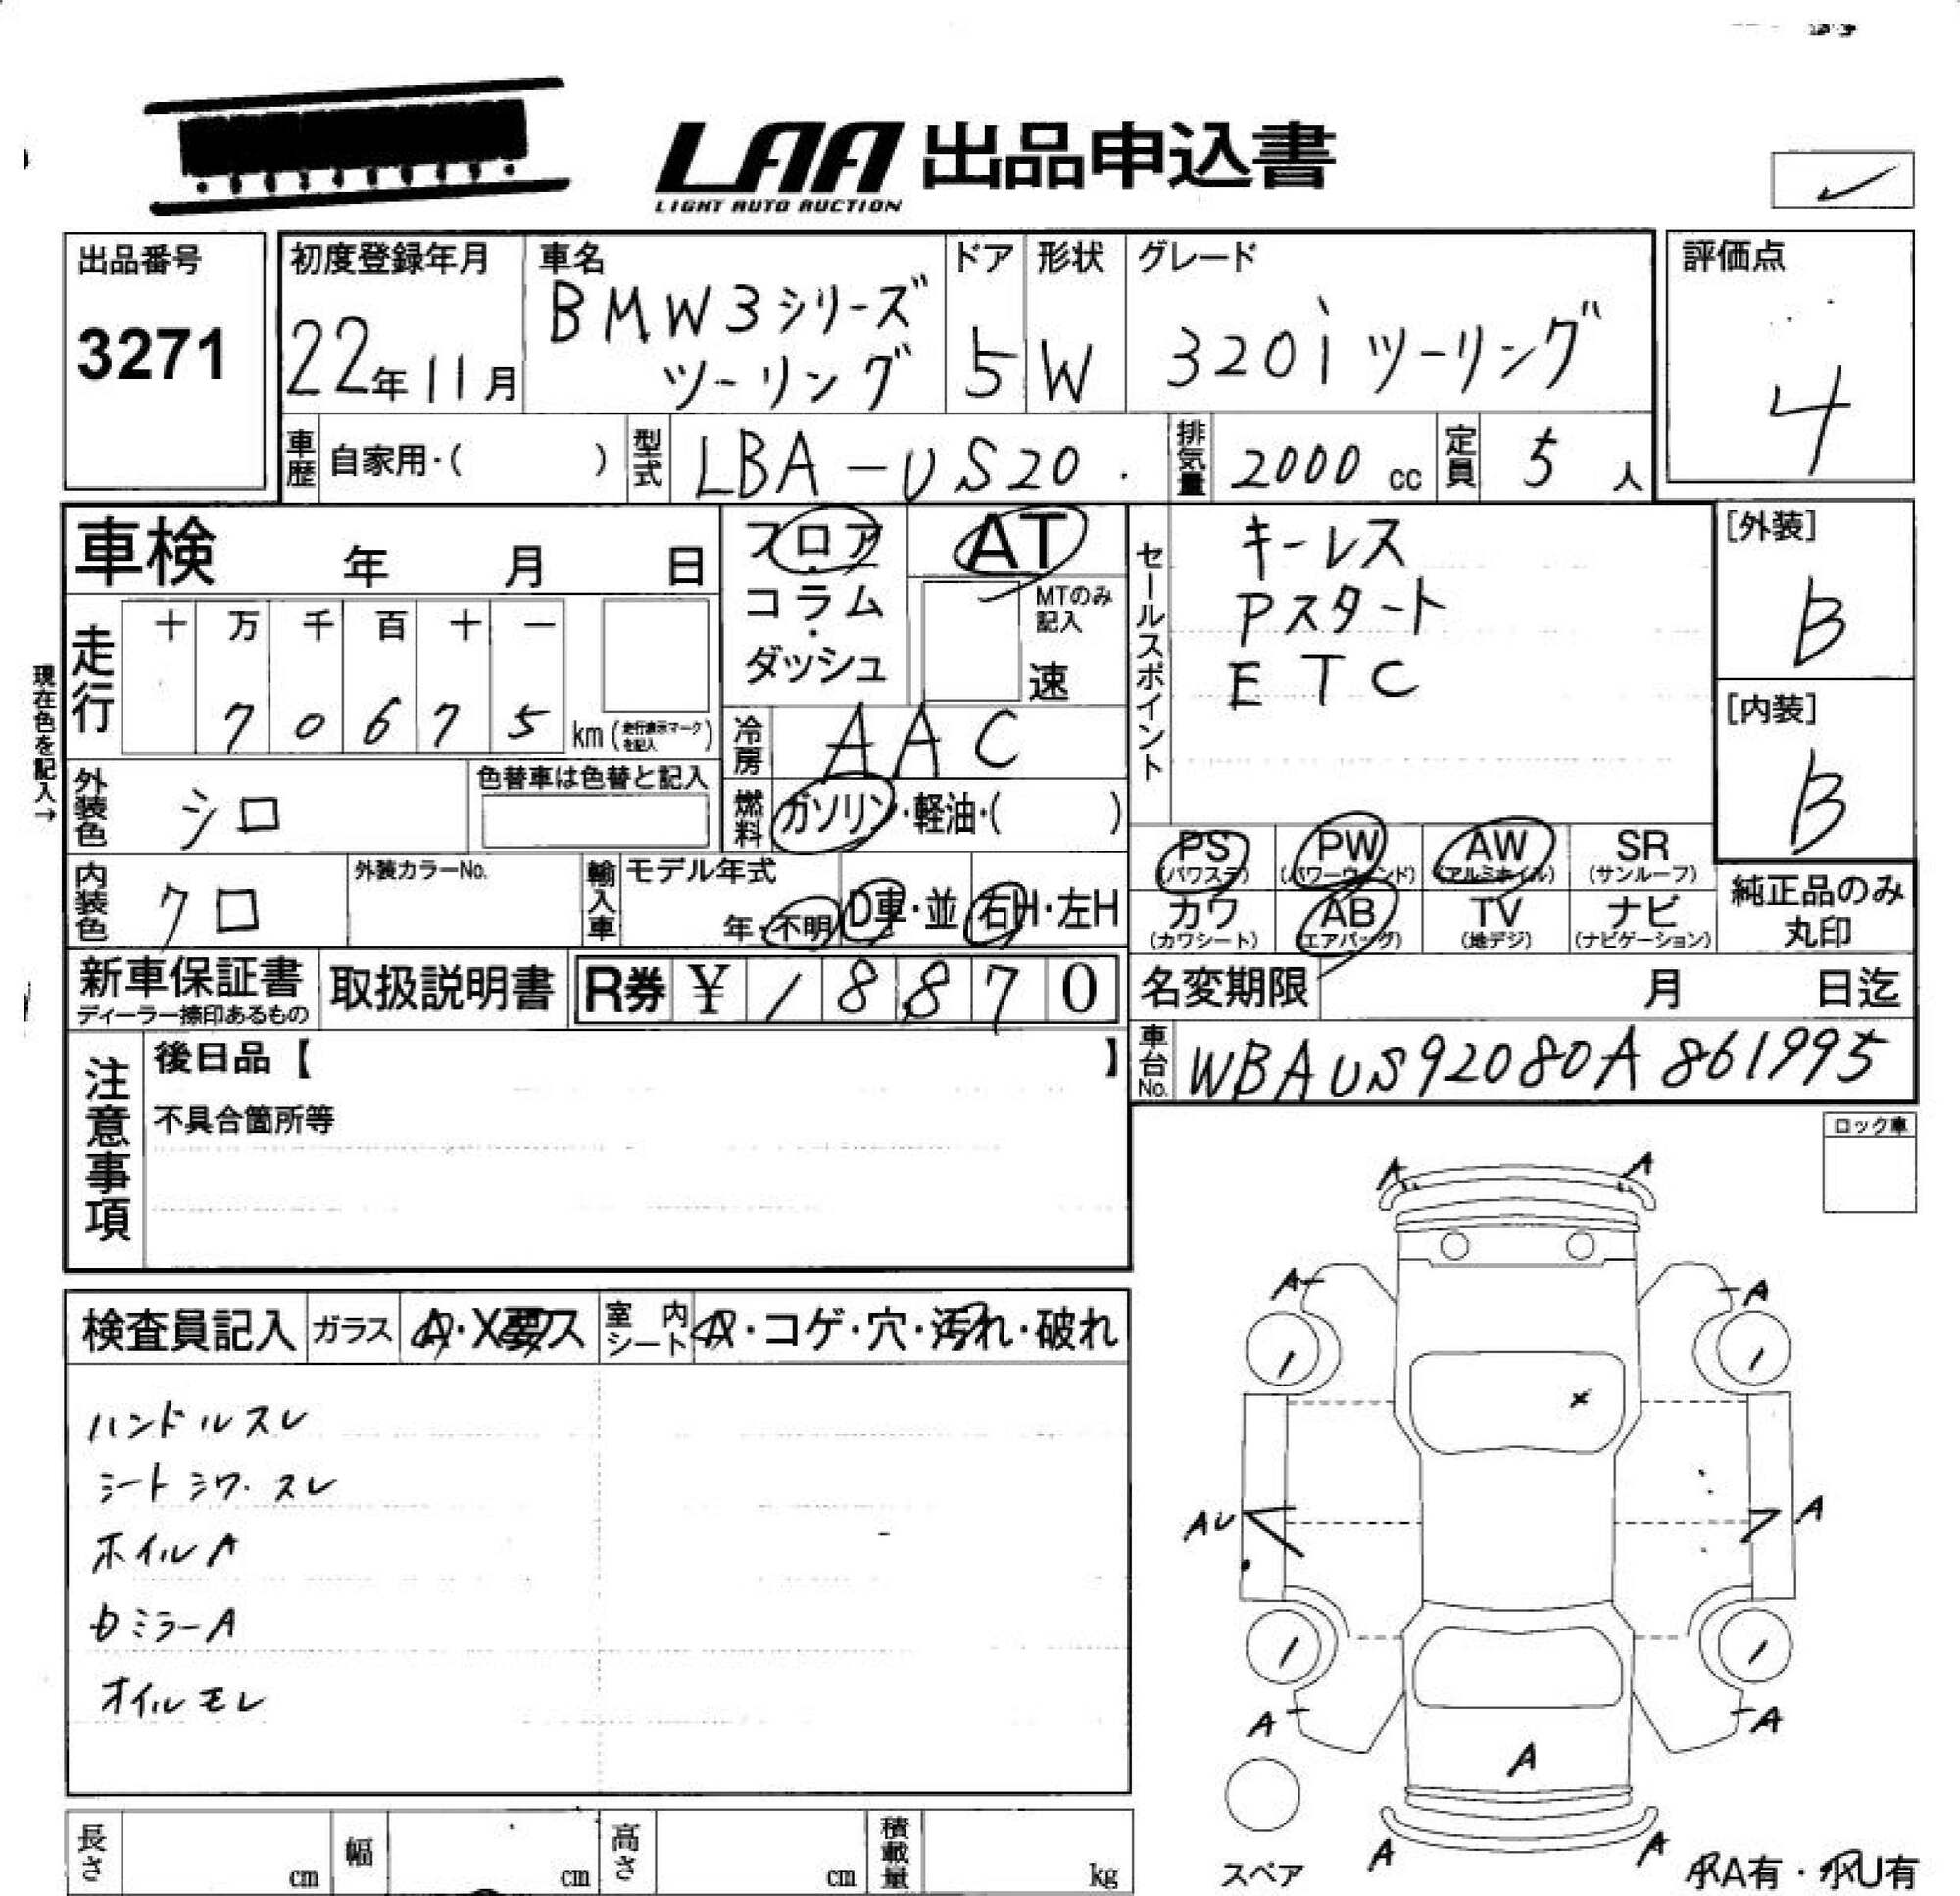 LAA 出品申込書
LIGHT AUTO AUCTION
出品番号
3271
初度登録年月
22年11月
車名
BMW3シリーズ
ツーリング
ドア
5
形状
W
グレード
320i ツーリング
評価点
4
車歴 自家用・( )
型式 LBA-US20
排気量 2000 cc
定員 5 人
車検 年 月 日
フロア・コラム・ダッシュ
AT
MTのみ記入
速
セールスポイント
キーレス
Pスタート
ETC
[外装]
B
[内装]
B
現在色を記入→
走行
十 万 千 百 十 一
7 0 6 7 5
km (走行表示マークを記入)
冷房 AAC
外装色 シロ
色替車は色替と記入
燃料 ガソリン・軽油・( )
PS (パワステ)
PW (パワーウィンド)
AW (アルミホイル)
SR (サンルーフ)
カワ (カワシート)
AB (エアバッグ)
TV (地デジ)
ナビ (ナビゲーション)
純正品のみ
丸印
内装色 クロ
外装カラーNo.
輸入車
モデル年式
年・不明
D車・並
右H・左H
新車保証書
ディーラー捺印あるもの
取扱説明書
R券 ¥ 18870
名変期限 月 日迄
車台No. WBAUS92080A861995
注意事項
後日品【 】
不具合箇所等
ロック車
検査員記入
ガラス A・X要ス
室内シート A・コゲ・穴・汚れ・破れ
ハンドルスレ
シートシワ・スレ
ホイルA
ミラーA
オイルモレ
A A
A A
X
AU A
A A
A
A A
スペア
長さ cm
幅 cm
高さ cm
積載量 kg
A有・U有